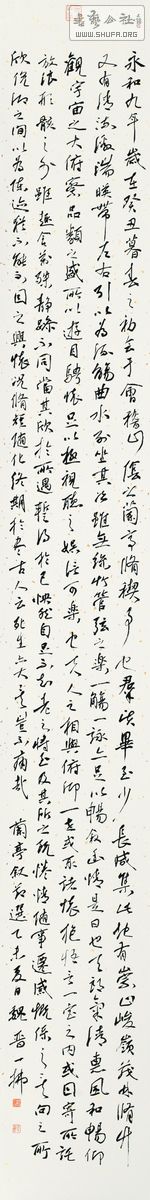 书艺公社
WWW.SHUFA.ORG
永和九年歲在癸丑暮春之初會于會稽山陰之蘭亭脩禊事也羣賢畢至少長咸集此地有崇山峻嶺茂林脩竹
又有清流激湍暎帶左右引以為流觴曲水列坐其次雖無絲竹管弦之樂一觴一詠亦足以暢敘幽情是日也天朗氣清惠風和暢仰
觀宇宙之大俯察品類之盛所以遊目騁懷足以極視聽之娛信可樂也夫人之相與俯仰一世或取諸懷抱悟言一室之內或因寄所託
放浪形骸之外雖趣舍萬殊靜躁不同當其欣於所遇暫得於己怏然自足不知老之將至及其所之既惓情隨事遷感慨係之矣向之所
欣俛仰之間以為陳迹猶不能不以之興懷況脩短隨化終期於盡古人云死生亦大矣豈不痛哉 蘭亭敘節選乙未夏日魏晉一拂